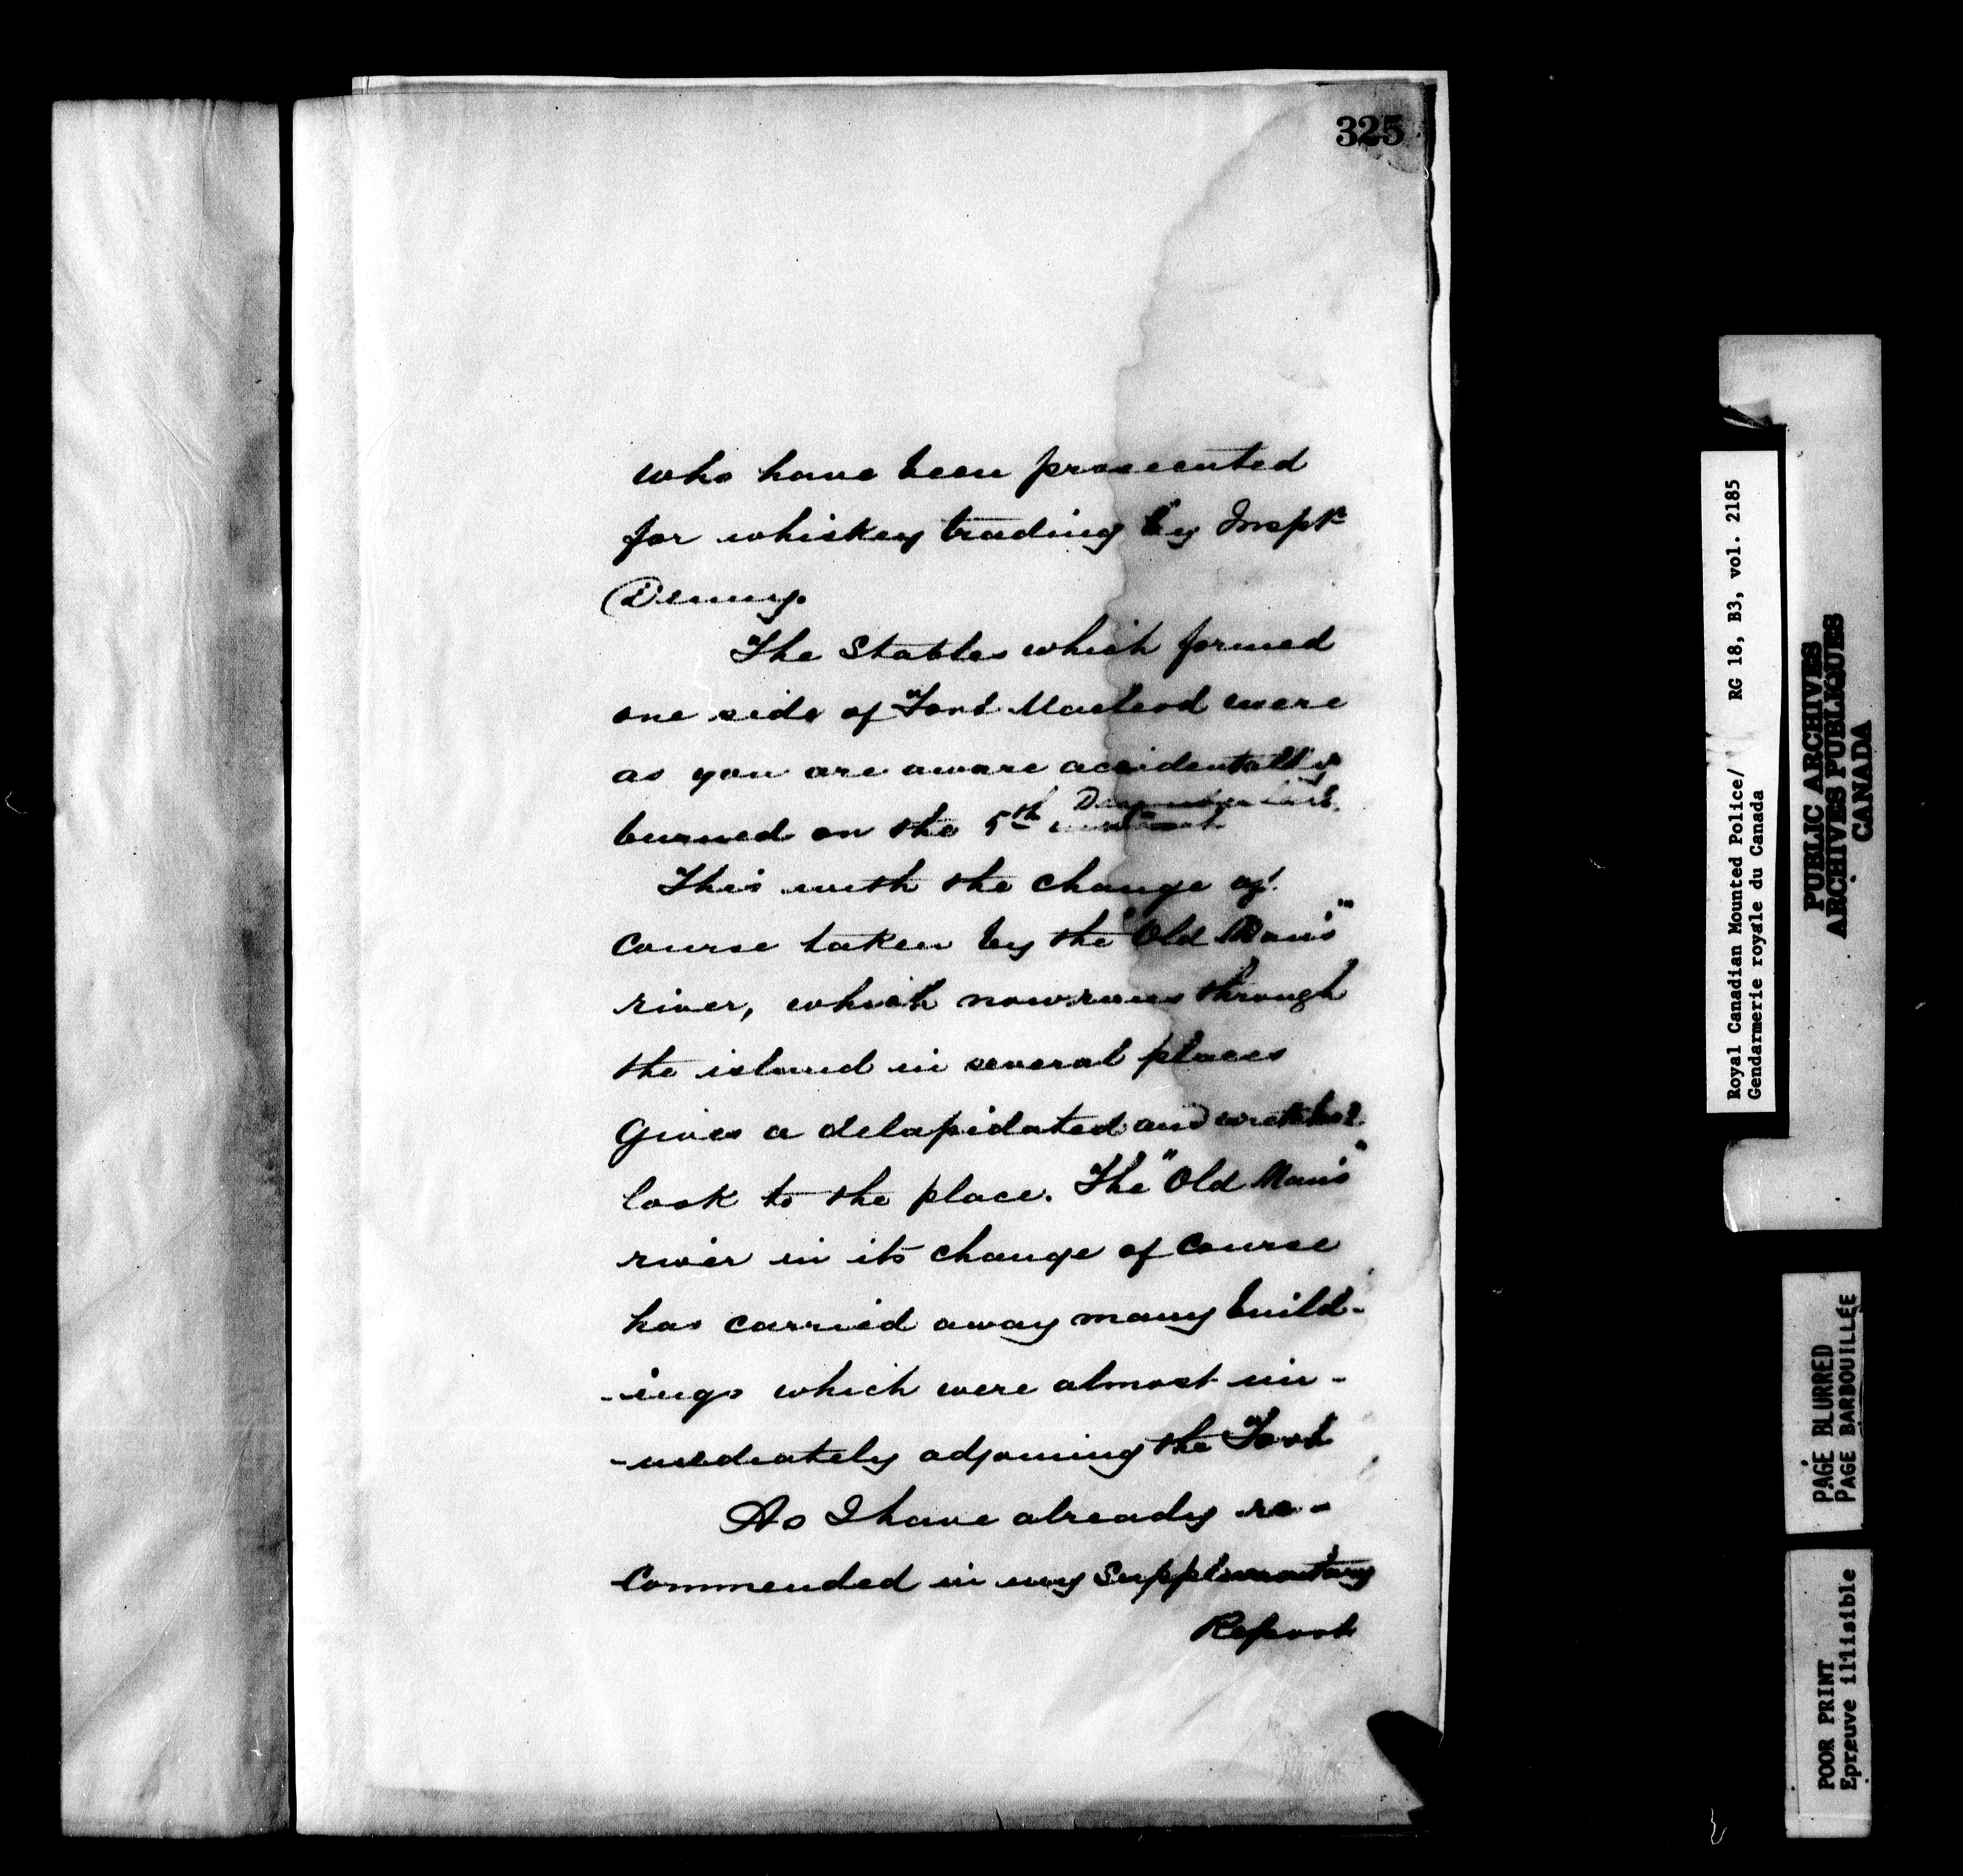 325
who have been prosecuted
for whiskey trading by Inspr
Denny.
The Stables which formed
one side of Fort Macleod were
as you are aware accidentally
December last.
burned on the 5th
This with the change of
course taken by the "Old Man's"
river, which now runs through
the island in several places
Gives a delapidated and wretched
look to the place. The "Old Man's"
river in its change of course
has carried away many build-
-ings which were almost im-
-mediately adjoining the Fort
As I have already re-
Commended in my Supplimentary
Report
Royal Canadian Mounted Police/ RG 18, B3, vol. 2185
Gendarmerie royale du Canada
PUBLIC ARCHIVES
ARCHIVES PUBLIQUES
CANADA
PAGE BLURRED
PAGE BARBOUILLÉE
POOR PRINT
Epreuve illisible